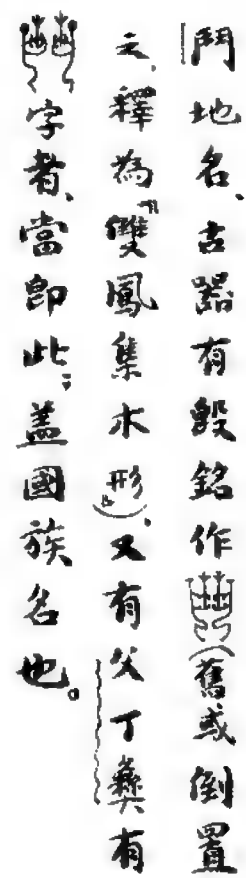 鬥地名、古器有𣪘銘作（舊或倒置
之，釋為「雙鳳集木形」）、又有父丁彝有
字者、當即此；蓋國族名也。